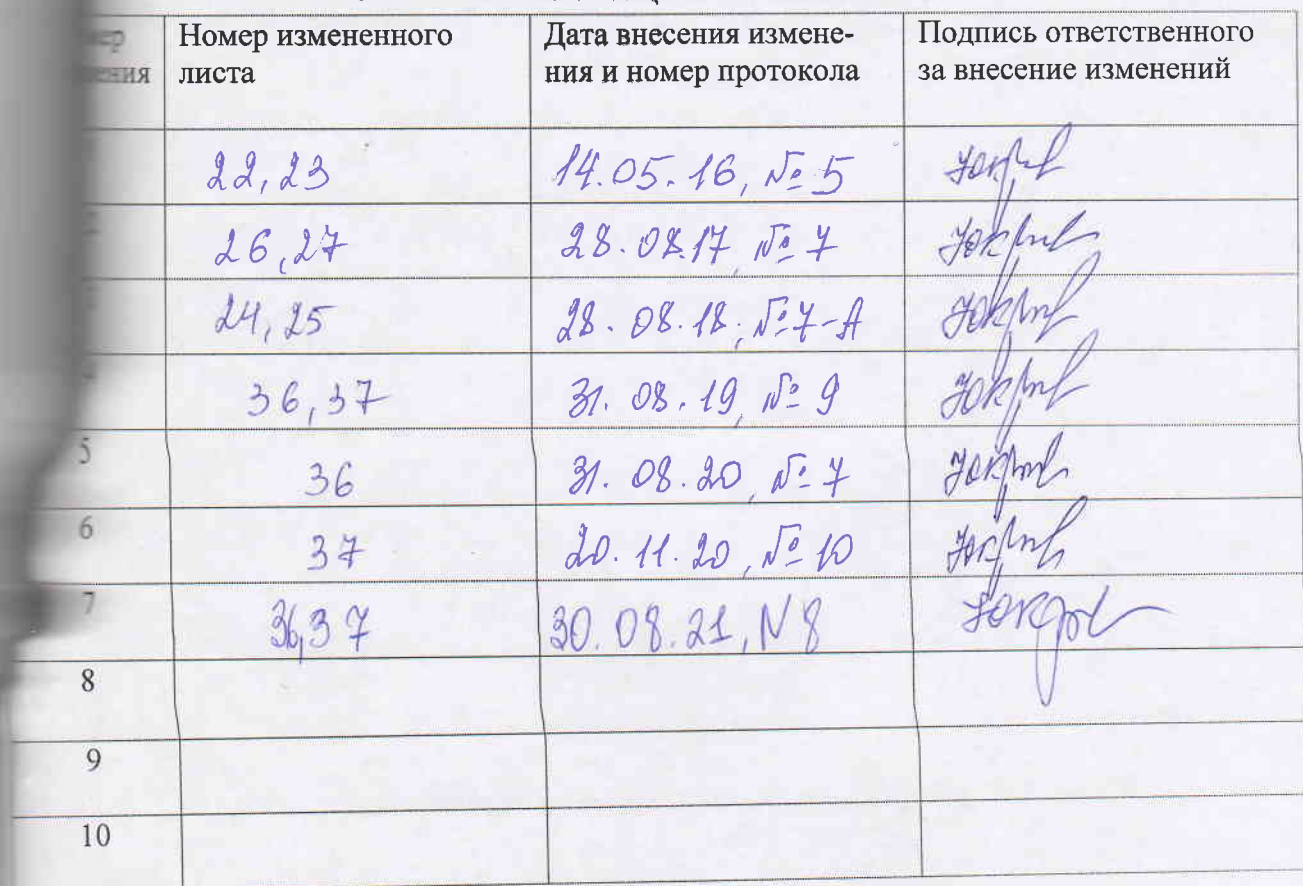 Номер измененного
листа
Дата внесения измене-
ния и номер протокола
Подпись ответственного
за внесение изменений
ения
22,23
14.05.16, № 5
26,27
28.08.17, № 7
24,25
28.08.18, № 7-А
36,37
31.08.19, № 9
5
36
31.08.20, № 7
6
37
20.11.20, № 10
7
36,37
30.08.21, N 8
8
9
10